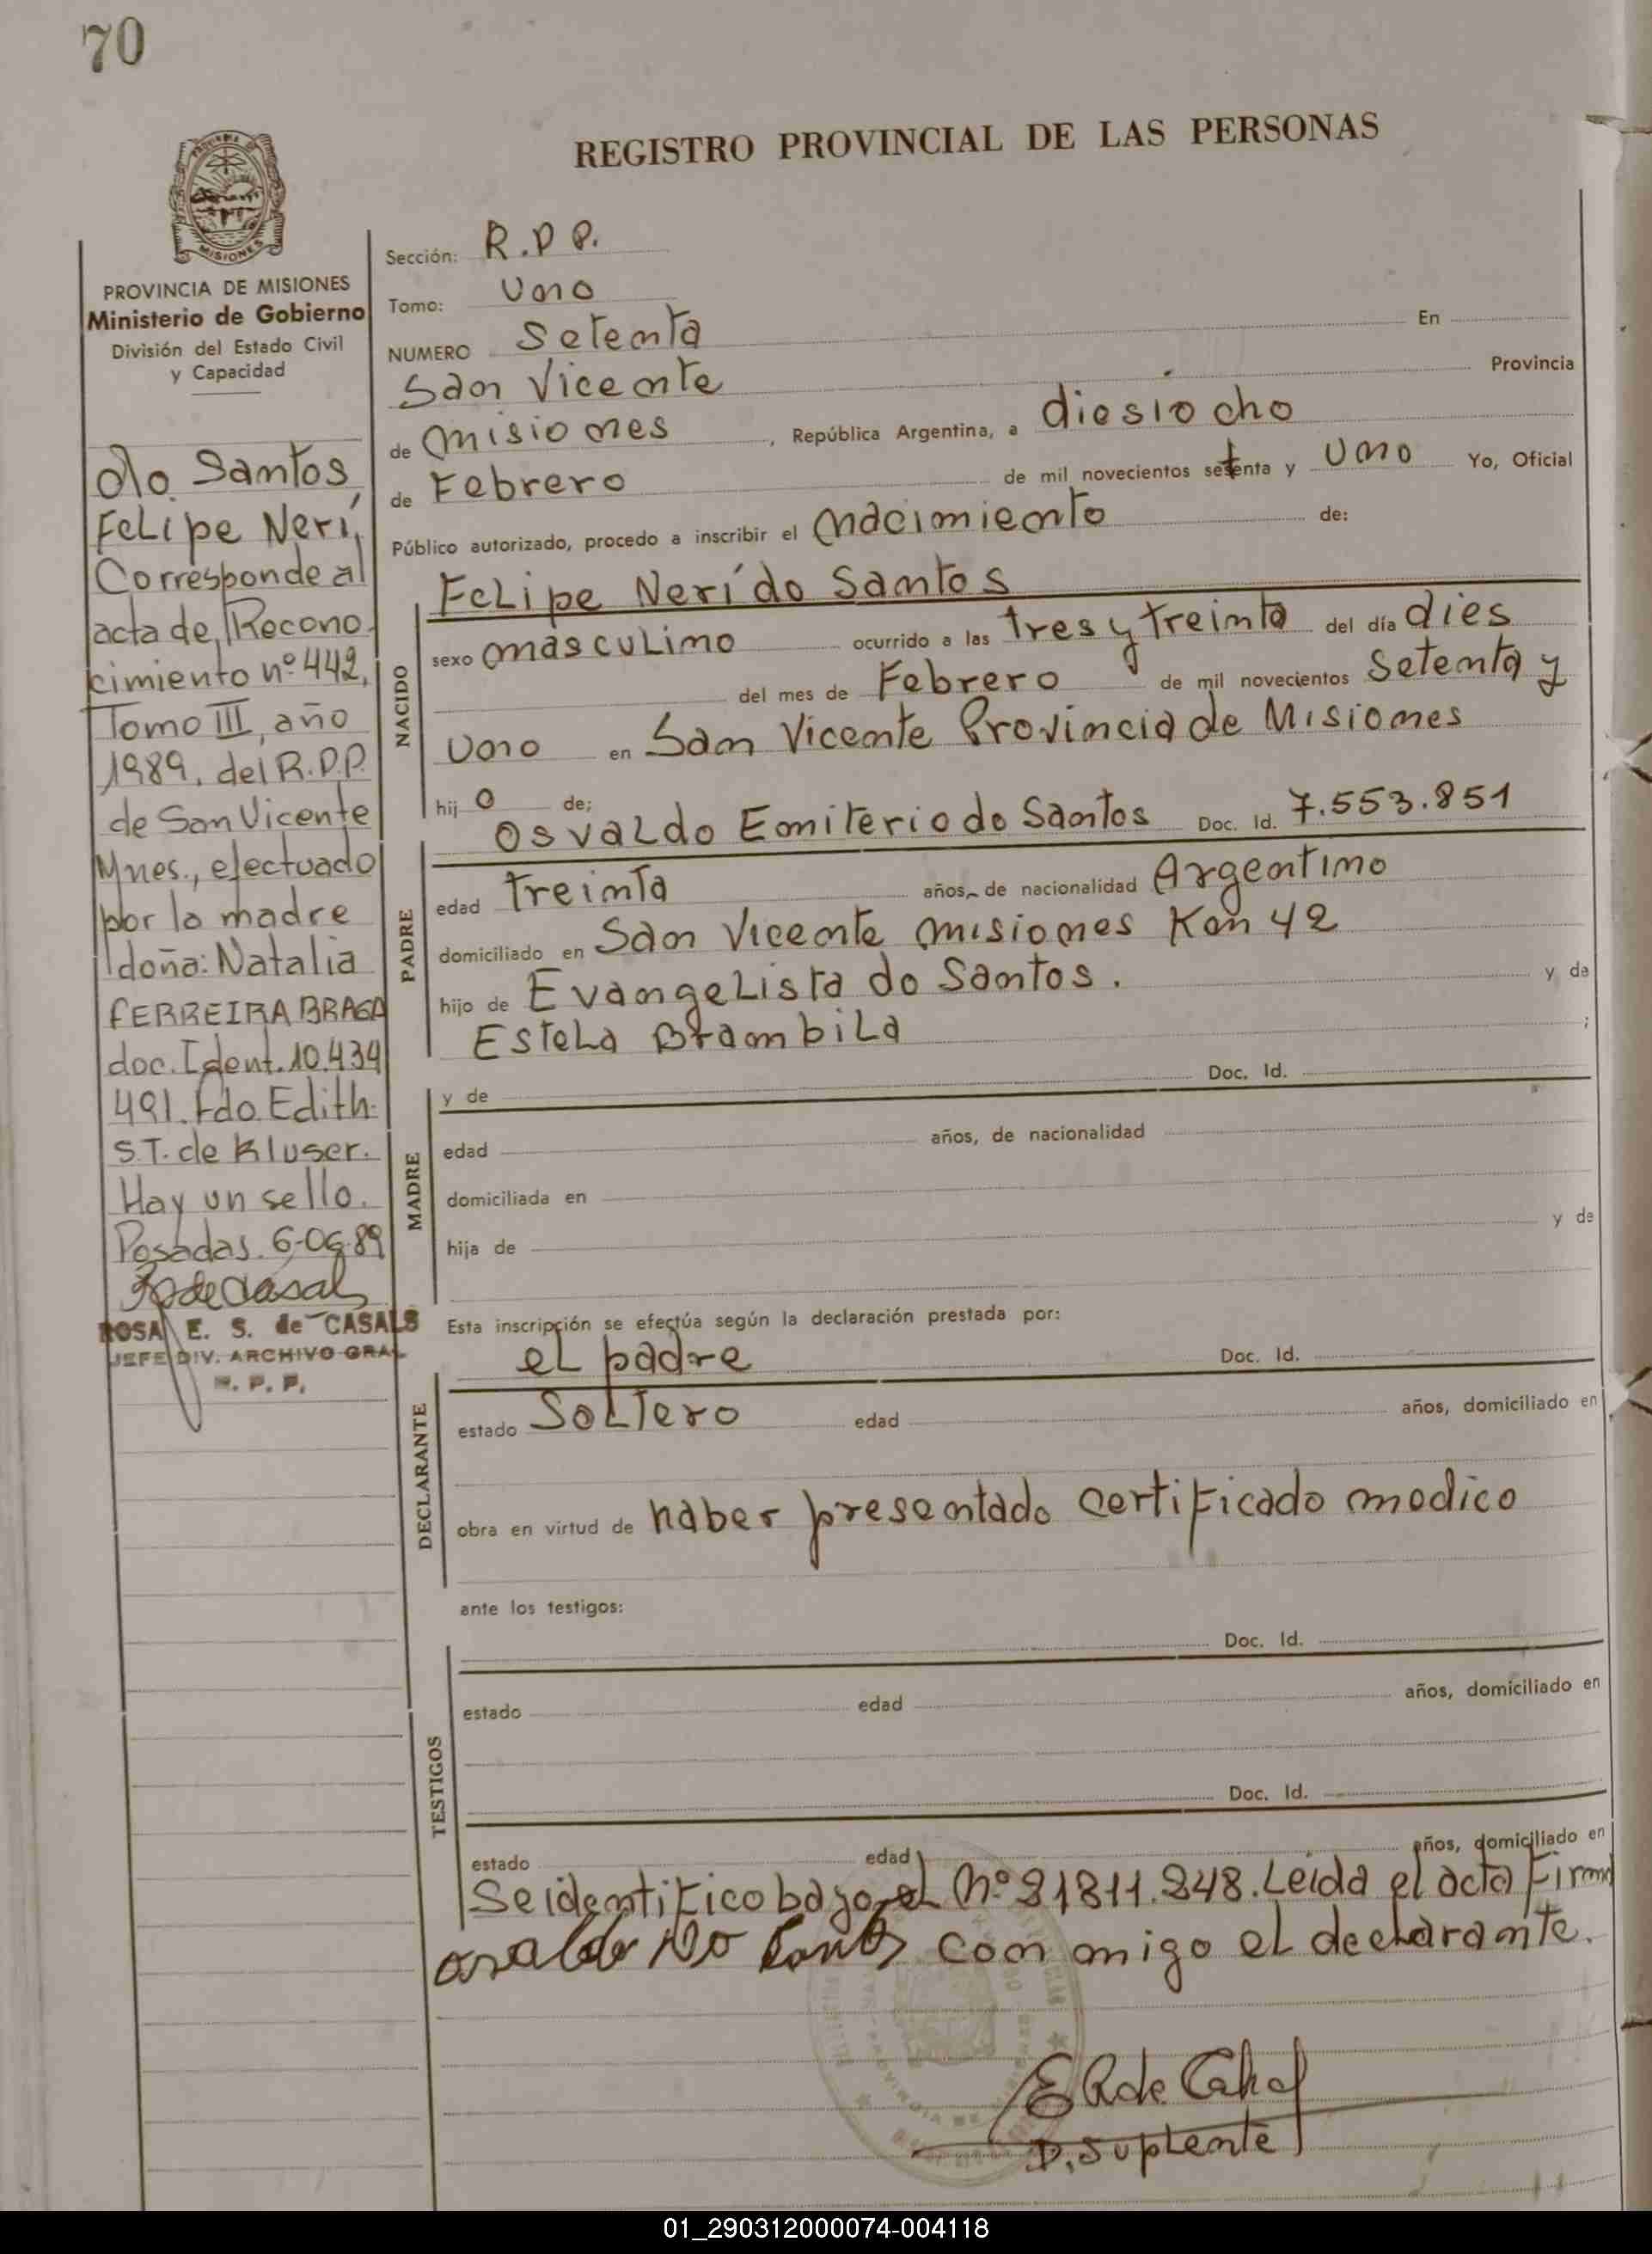 70
REGISTRO PROVINCIAL DE LAS PERSONAS
MISIONES
PROVINCIA DE MISIONES
Ministerio de Gobierno
División del Estado Civil
y Capacidad
do Santos,
Felipe Nerí,
Corresponde al
acta de Recono-
cimiento nº 442,
Tomo III, año
1989, del R.P.P.
de San Vicente
Mnes., efectuado
por la madre
doña: Natalia
FERREIRA BRAGA
doc. Ident. 10.434
491. Fdo Edith
S.T. de Kluser.
Hay un sello.
Posadas. 6-06-89
ROSA E. S. de CASALS
JEFE DIV. ARCHIVO GRAL
R. P. P.
Sección: R.P.P.
Tomo: Uno
NUMERO Setenta En
San Vicente Provincia
de Misiones, República Argentina, a diesiocho
de Febrero de mil novecientos setenta y Uno Yo, Oficial
Público autorizado, procedo a inscribir el Nacimiento de:
NACIDO
Felipe Nerí do Santos
sexo masculino ocurrido a las tres y treinta del día dies
del mes de Febrero de mil novecientos Setenta y
Uno en San Vicente Provincia de Misiones
hijo de;
PADRE
Osvaldo Emiterio do Santos Doc. Id. 7.553.851
edad treinta años, de nacionalidad Argentino
domiciliado en San Vicente Misiones Km 42
hijo de Evangelista do Santos. y de
Estela Brambila ;
MADRE
y de Doc. Id.
edad años, de nacionalidad
domiciliada en
hija de y de
Esta inscripción se efectúa según la declaración prestada por:
DECLARANTE
el padre Doc. Id.
estado Soltero edad años, domiciliado en
obra en virtud de haber presentado certificado modico
ante los testigos:
TESTIGOS
Doc. Id.
estado edad años, domiciliado en
Doc. Id.
estado edad años, domiciliado en
Se identifico bajo el Nº 21811.248. Leida el acta Firma
do Santos con migo el declarante.
D. Suplente
01_290312000074-004118